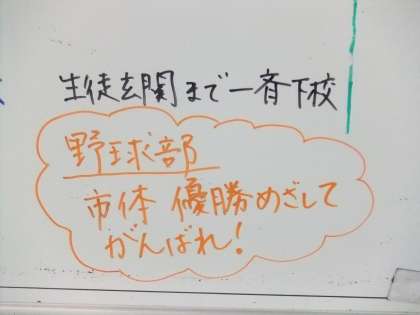 生徒玄関まで一斉下校
野球部
市体 優勝めざして
がんばれ!